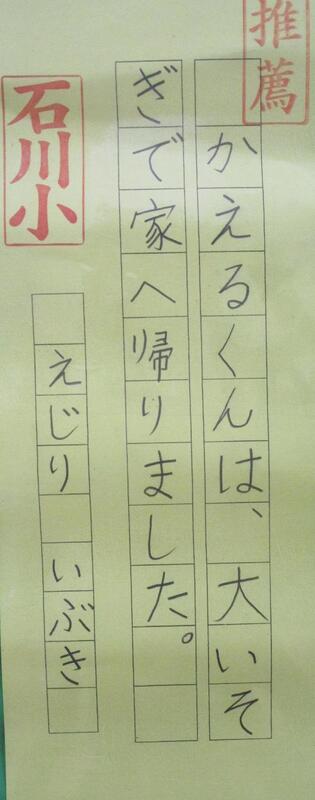 推薦
かえるくんは、大いそ
ぎで家へ帰りました。
石川小
えじり いぶき